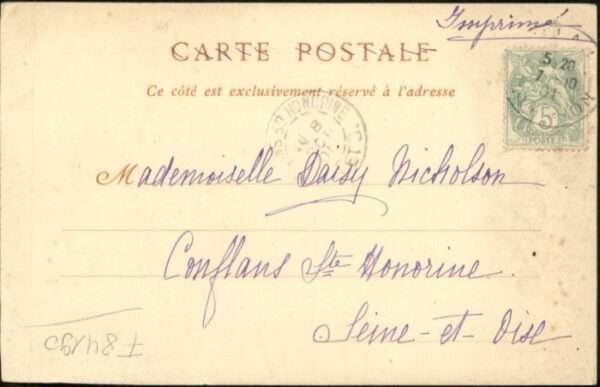 Imprimé
CARTE POSTALE
Ce côté est exclusivement réservé à l'adresse
5 20
7 10
01
5c
POSTES
HONORINE
8
Mademoiselle Daisy Nicholson
Conflans Ste Honorine
Seine-et-Oise